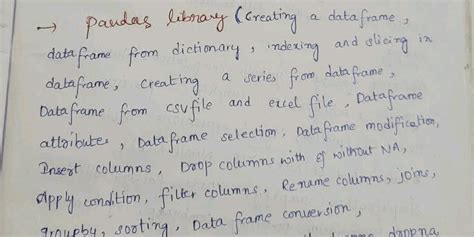 → pandas library (Creating a dataframe,
dataframe from dictionary, indexing and slicing in
dataframe, creating a series from dataframe,
Dataframe from csvfile and excel file, Dataframe
attributes, Dataframe selection, Dataframe modification,
Insert columns, Drop columns with & without NA,
Apply condition, filter columns, Rename columns, joins,
groupby, sorting, Data frame conversion,
dropna